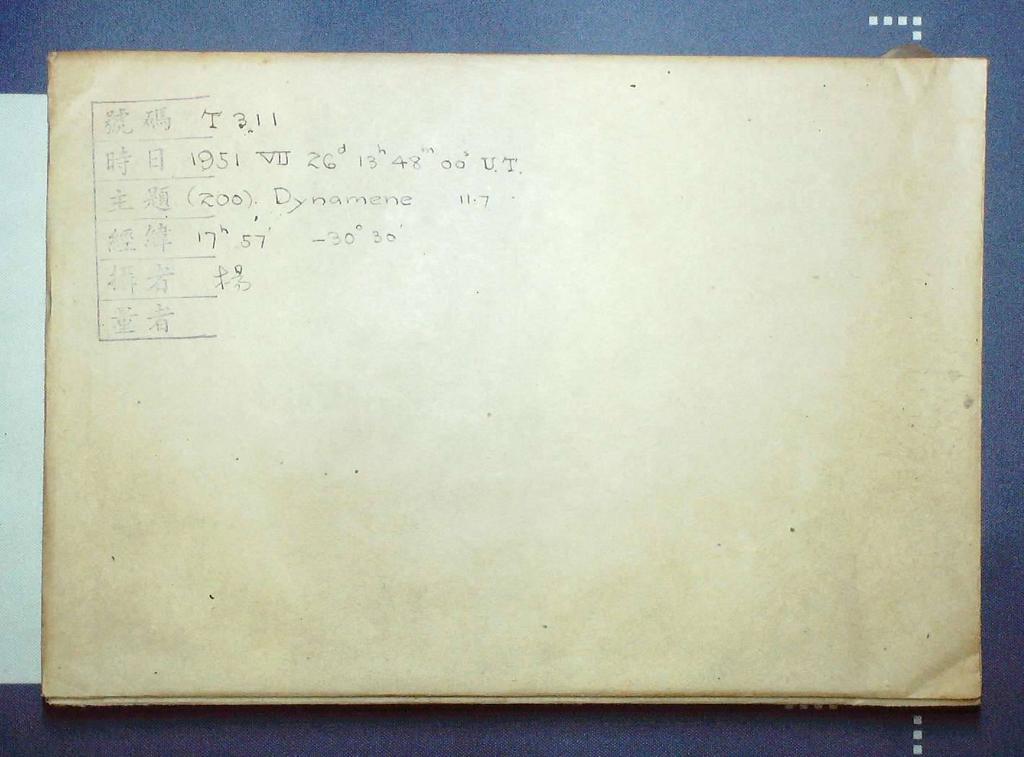 號碼 T 311
時日 1951 VII 26ᵈ 13ʰ 48ᵐ 00ˢ U.T.
主題 (200). Dynamene 11.7
經緯 17ʰ 57′ -30° 30′
攝者 楊
量者